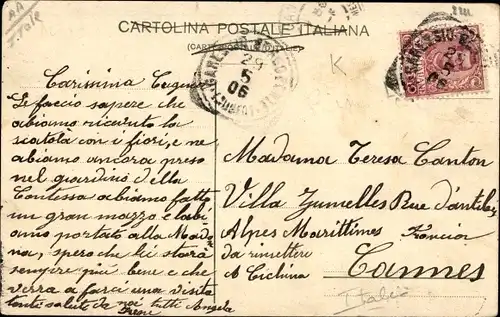 AA
Itale
CARTOLINA POSTALE ITALIANA
(CARTE POSTALE D'ITALIE)
K
29
5
06
Carissima
Le faccio sapere che
abiamo ricevuto la
scatola con i fiori, e ne
abiamo ancora preso
nel giardino della
Contessa abiamo fatto
un gran mazzo e labi
amo portato alla Mado
na, spero che lei starà
sempre più bene e che
verra a farci una visita
tante salute da noi tutti Angela
Irene
Madama Teresa Canton
Villa Jumelles Rue d'antibes
Alpes Marittimes Francia
da rimettere
A Cichina
Cannes
Italie